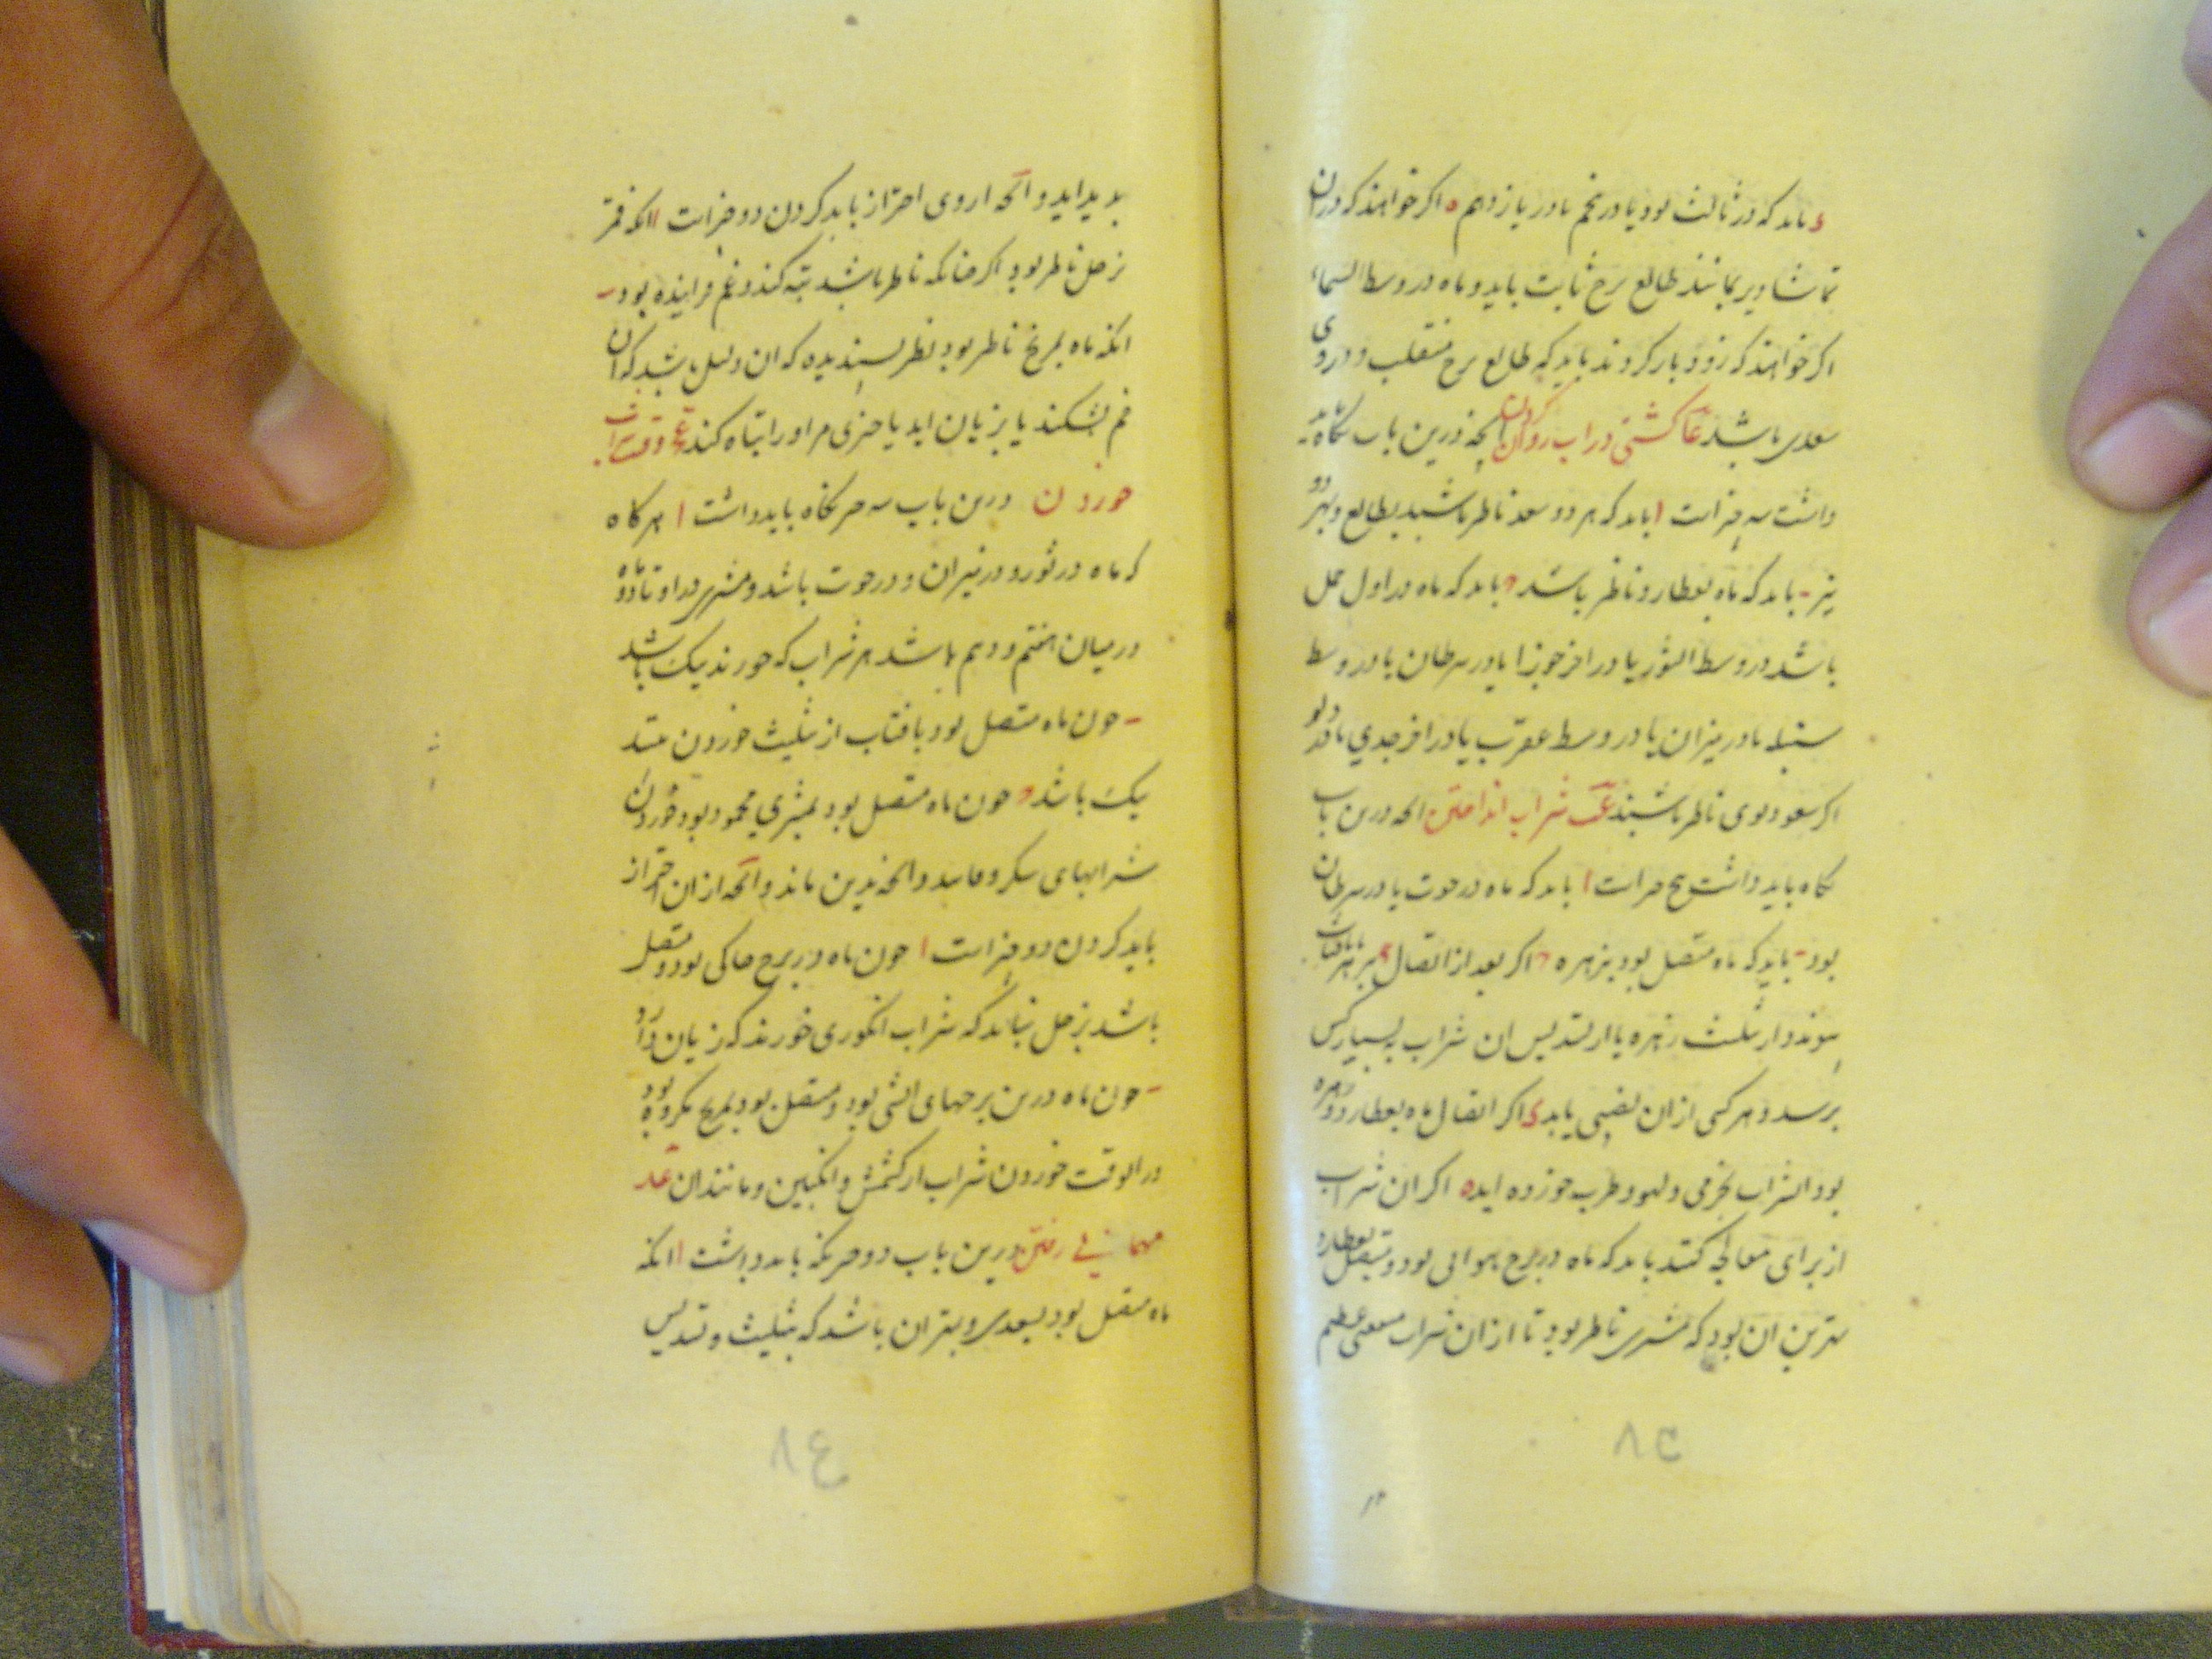 د باید که در ثالث بود یا در پنجم یا در یازدهم ه اگر خواهند که در ان
تماشا دیر بمانند طالع برج ثابت باید و ماه در وسط السماء
اگر خواهند که زود بازگردند باید که طالع برج منقلب و در وی
سعدی باشد عا کشتی در اب روان کردن انچه درین باب نگاه باید
داشت سه چیز است ا باید که هر دو سعد ناظر باشند بطالع و بهر دو
نیر ب باید که ماه بعطارد ناظر باشد ج باید که ماه در اول حمل
باشد در وسط الثور یا در اخر جوزا یا در سرطان یا در وسط
سنبله یا در میزان یا در وسط عقرب یا در اخر جدي یا در دلو
اگر سعود بوی ناظر باشند عب شراب انداختن انچه درین باب
نگاه باید داشت پنج چیز است ا باید که ماه در حوت یا در سرطان
بود ب باید که ماه متصل بود بزهره ج اگر بعد از اتصال بزهره بافتاب
پیوندد از تثلیث زهره یا از تسدیس ان شراب ببسیار کس
برسد و هر کسی از ان نصیبی یابد د اگر اتصال ماه بعطارد و زهره
بود ان شراب بخرمی و لهو و طرب خورده اید ه اگر ان شراب
از برای معالجه کنند باید که ماه در برج هوایی بود و متصل بعطارد
بهترین ان بود که مشتری ناظر بود تا از ان شراب منفعتی عظیم
۸۳
پدید اید و انچه از وی احتراز باید کردن دو چیز است ا انکه قمر
بزحل ناظر بود اگر چنانکه ناظر باشد تبه کند و غم فزاینده بود ب
انکه ماه بمریخ ناظر بود نظر پسندیده که ان دلیل باشد که ان
خم بشکند یا بزیان اید یا چیزی مر او را تباه کند عج وقت شراب
خوردن درین باب سه چیز نگاه باید داشت ا هرگاه
که ماه در ثور و در میزان و در حوت باشد و مشتری در اوتاد و ماه
در میان هفتم و دهم باشد هر شراب که خورند نیک باشد
ب چون ماه متصل بود بافتاب از تثلیث خوردن
نیک باشد ج چون ماه متصل بود بمشتري محمود بود خوردن
شرابهای سکر و فانید و انچه بدین ماند و انچه از ان احتراز
باید کردن دو چیز است ا چون ماه در برج خاکی بود و متصل
باشد بزحل نباید که شراب انگوری خورند که زیان دارد
ب چون ماه درین برجهای اتشی بود و متصل بود بمریخ مکروه بود
در ان وقت خوردن شراب از کشمش و انگبین و مانند ان عد
مهمانی رفتن درین باب دو چیز نگه باید داشت ا انکه
ماه متصل بود بسعدی و بهتر ان باشد که بتثلیث و تسدیس
۸٤